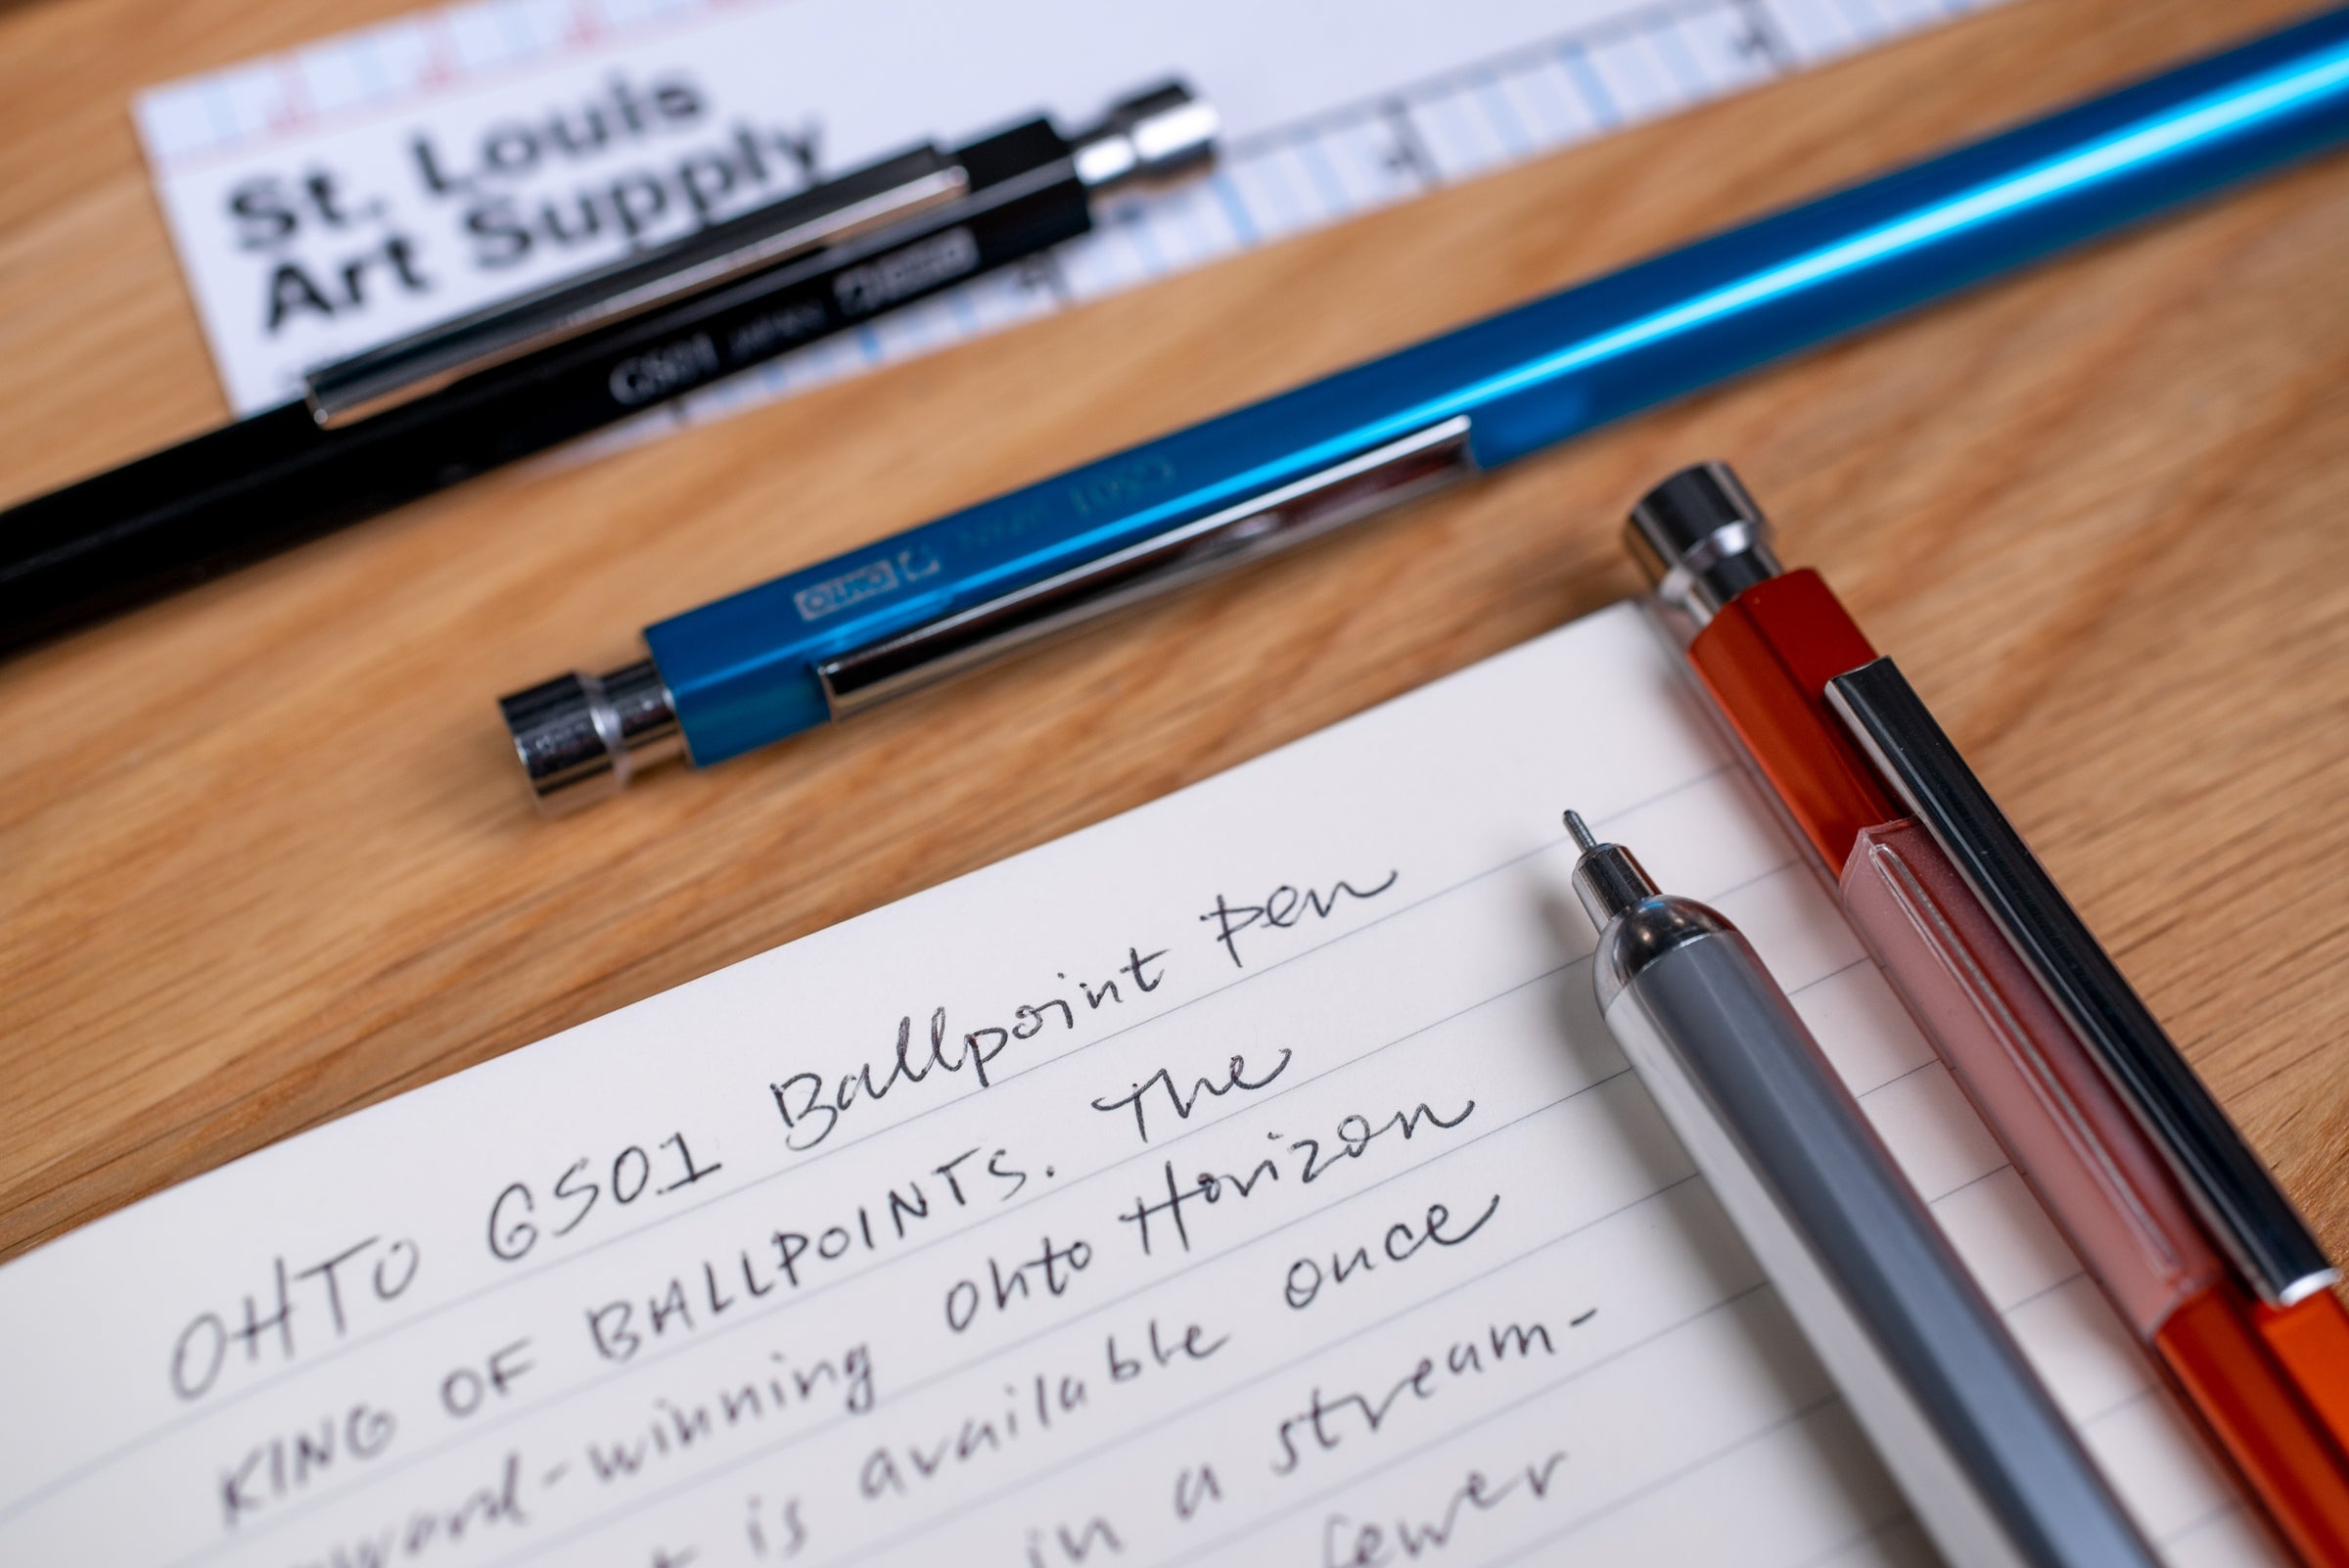 St. Louis
Art Supply
GS01 JAPAN OHTO
OHTO JAPAN GS01
OHTO GS01 Ballpoint Pen
KING OF BALLPOINTS. The
award-winning Ohto Horizon
is available once
in a stream-
fewer